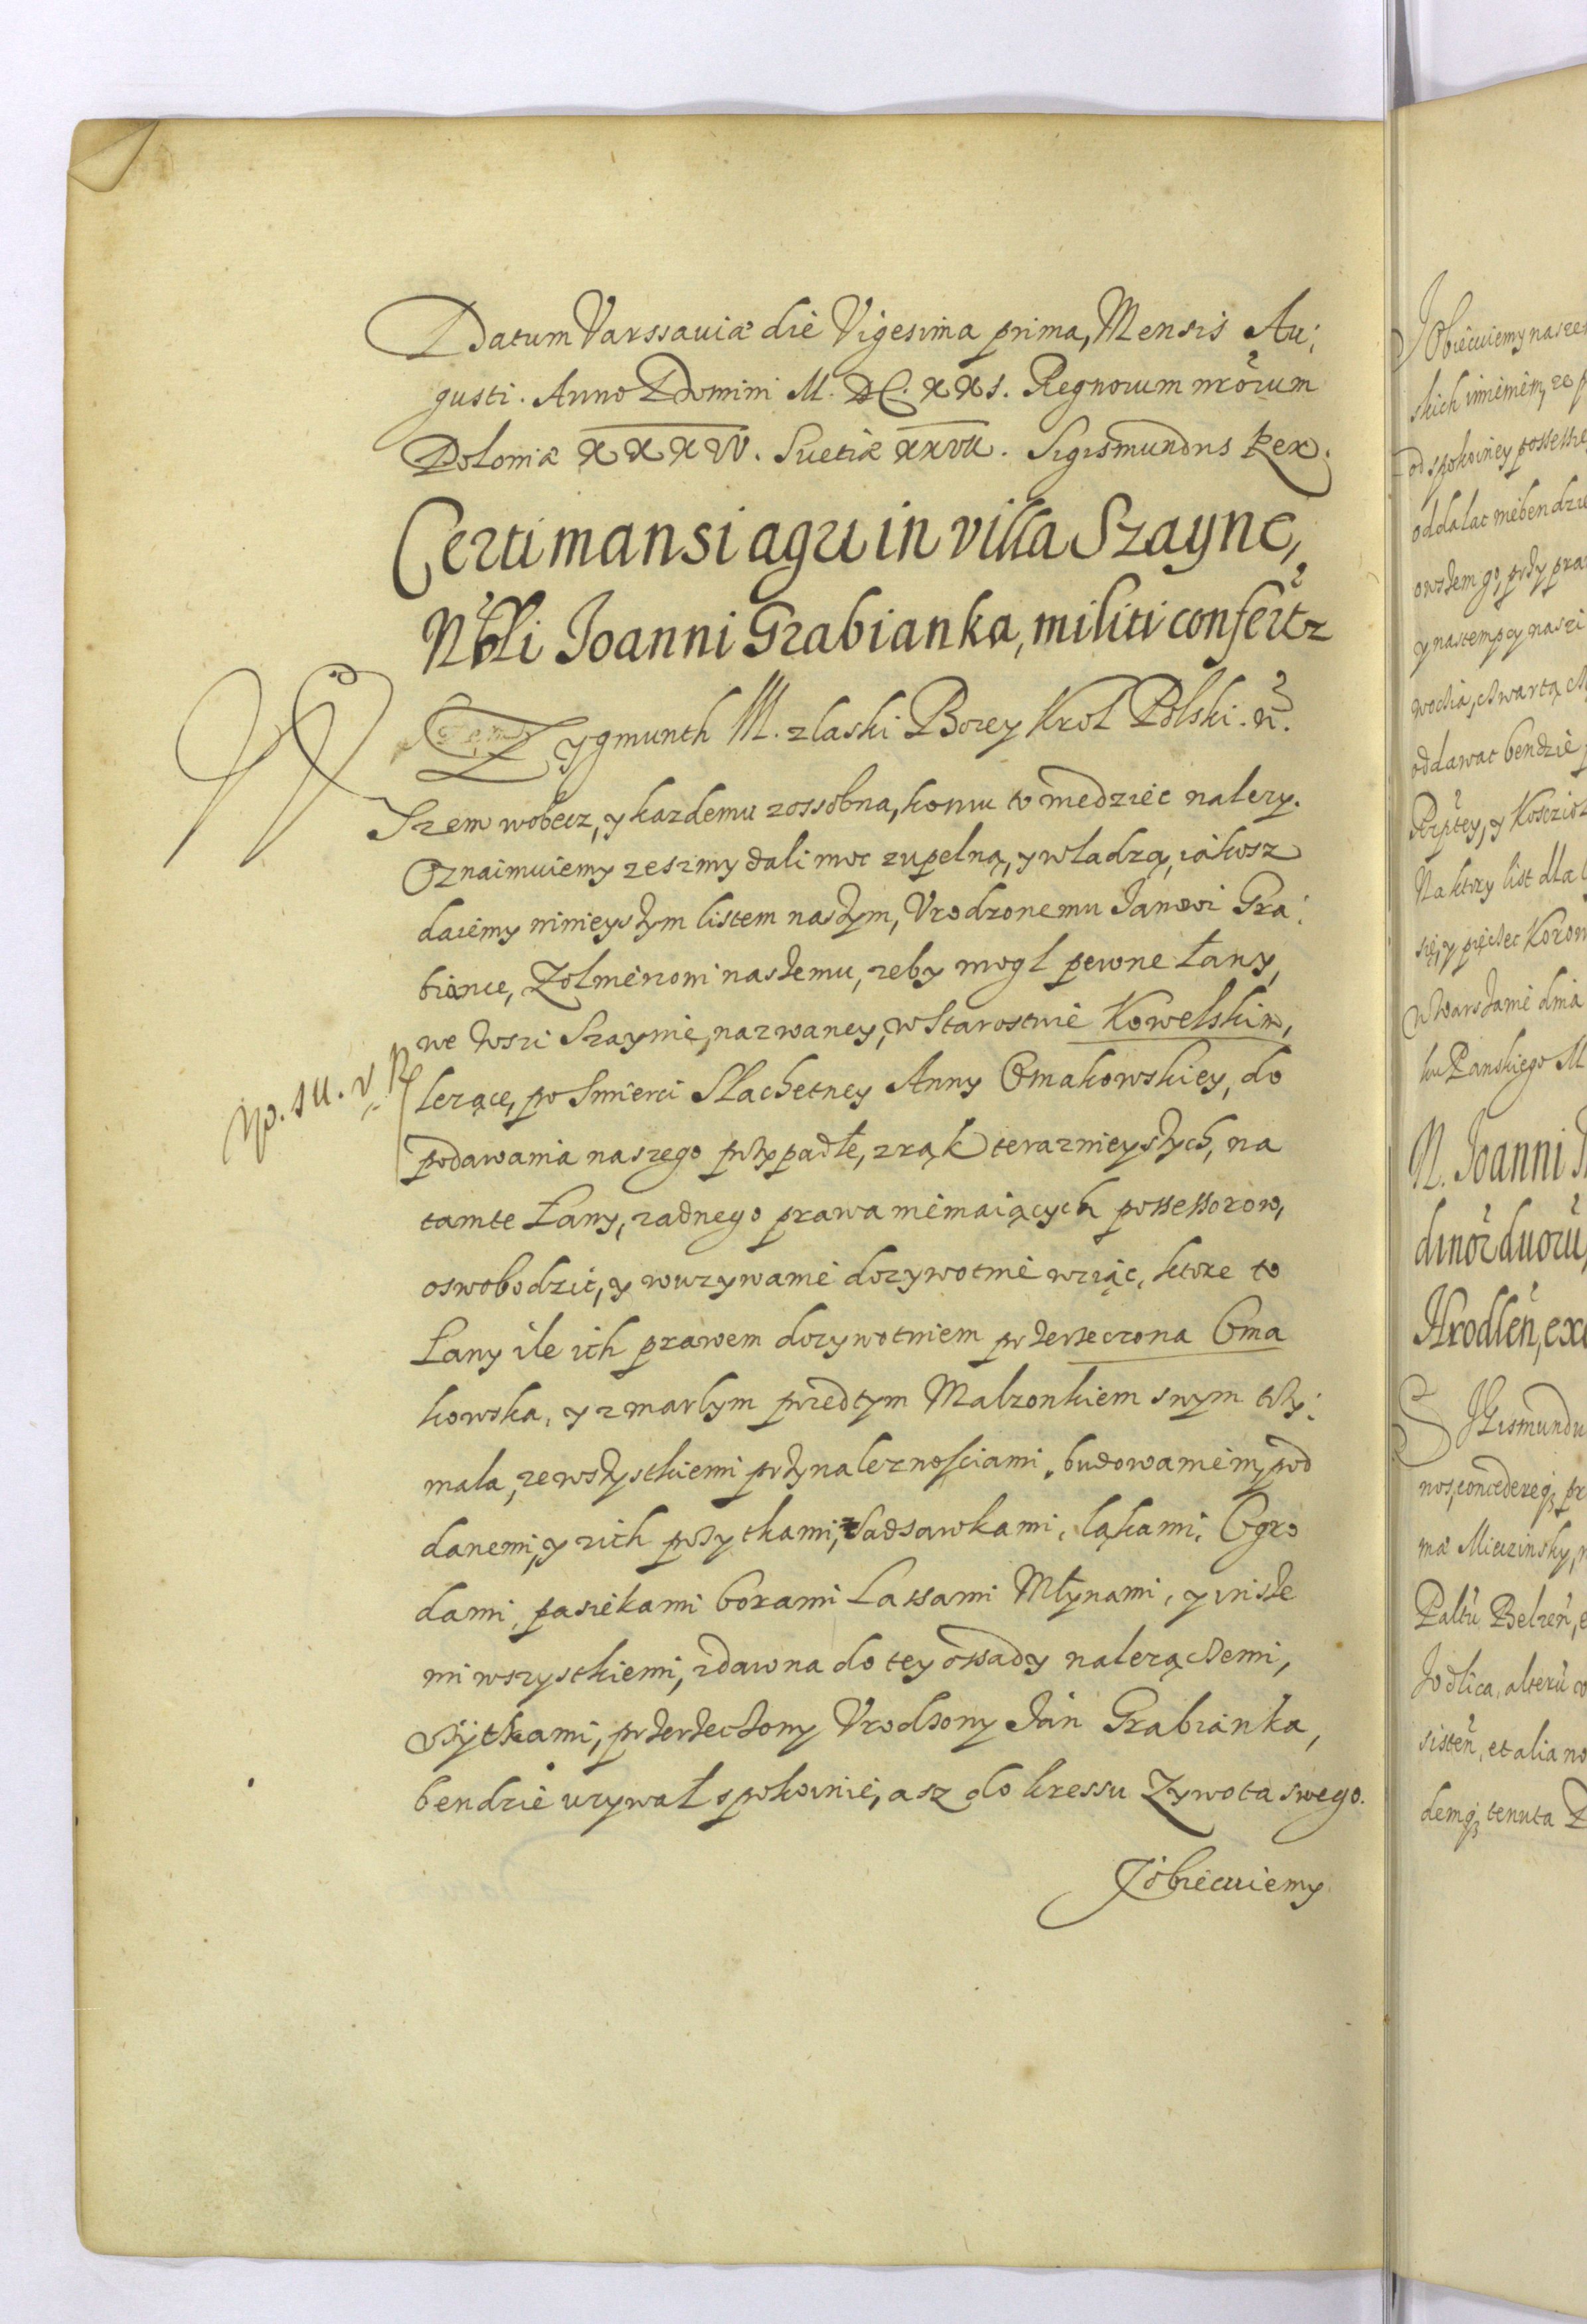 Datum Varssauiæ die Vigesima prima, Mensis Au:
gusti. Anno Domini M. DC. XXI. Regnorum nrorum
Poloniæ XXXIV. Suetiæ XXVII. Sigismundus Rex.
Certi mansi agri in villa Szayne,
Nbli Joanni Grabianka, militi confertr
Zygmunth III. z laski Bozey Krol Polski. n.
Wszem wobecz, y kazdemu zossobna, komu to wiedziec nalezy.
Oznaimuiemy zeszmy dali moc zupelną, y wladzą, iákosz
daiemy ninieyszym listem naszym, Vrodzonemu Janowi Gra:
biance, Zolnierzowi naszemu, zeby mogl pewne Łany,
we wszi Szaynie, nazwaney, w Starostwie Kowelskim,
lezące, po Smierci Slachetney Anny Omakowskiey, do
podawania naszego przypadłe, z rąk teraznieyszych, na
tamte Łany, zadnego prawa niemaiących possessorow,
oswobodzic, y w uzywanie dozywotnie wziąc, ktore to
Łany ile ich prawem dozywotniem przerzeczona Oma
kowska, y z marlym przedtym Malzonkiem swym trzy:
mala, ze wszystkiemi przynaleznosciami, budowaniem, pod
danemi, y z ich pozytkami, Sadzawkami, ląkami, Ogro
dami, pasiekami borami Lassami Młynami, y insze
mi wszystkiemi, zdawna do tey ossady nalezączemi,
pozytkami, przerzeczony Vrodzony Ján Grabianka,
bendzie uzywał spokoinie, asz do kressu Zywota swego.
J obiecuiemy
Jobiecuiemy nasze
skich imieniem, ze p
od spokoiney possessie
oddalac niebendzie
owszem go, przy pra
y nastempcy nasci
wocia, chwartą
oddawac bendzie
Rzptey, y Koscio
Na ktory list dla l
się, y pięczec Koron
w Warszawie dnia
ku Panskiego M
N. Joanni
dinor duoru,
Hrodlen, exc
Sigismundu
nos, concederęq pr
mæ Mieczinsky, n
Paltu Belzen, e
Jodlica, alteru
sisten, et alia no
demq tenuta